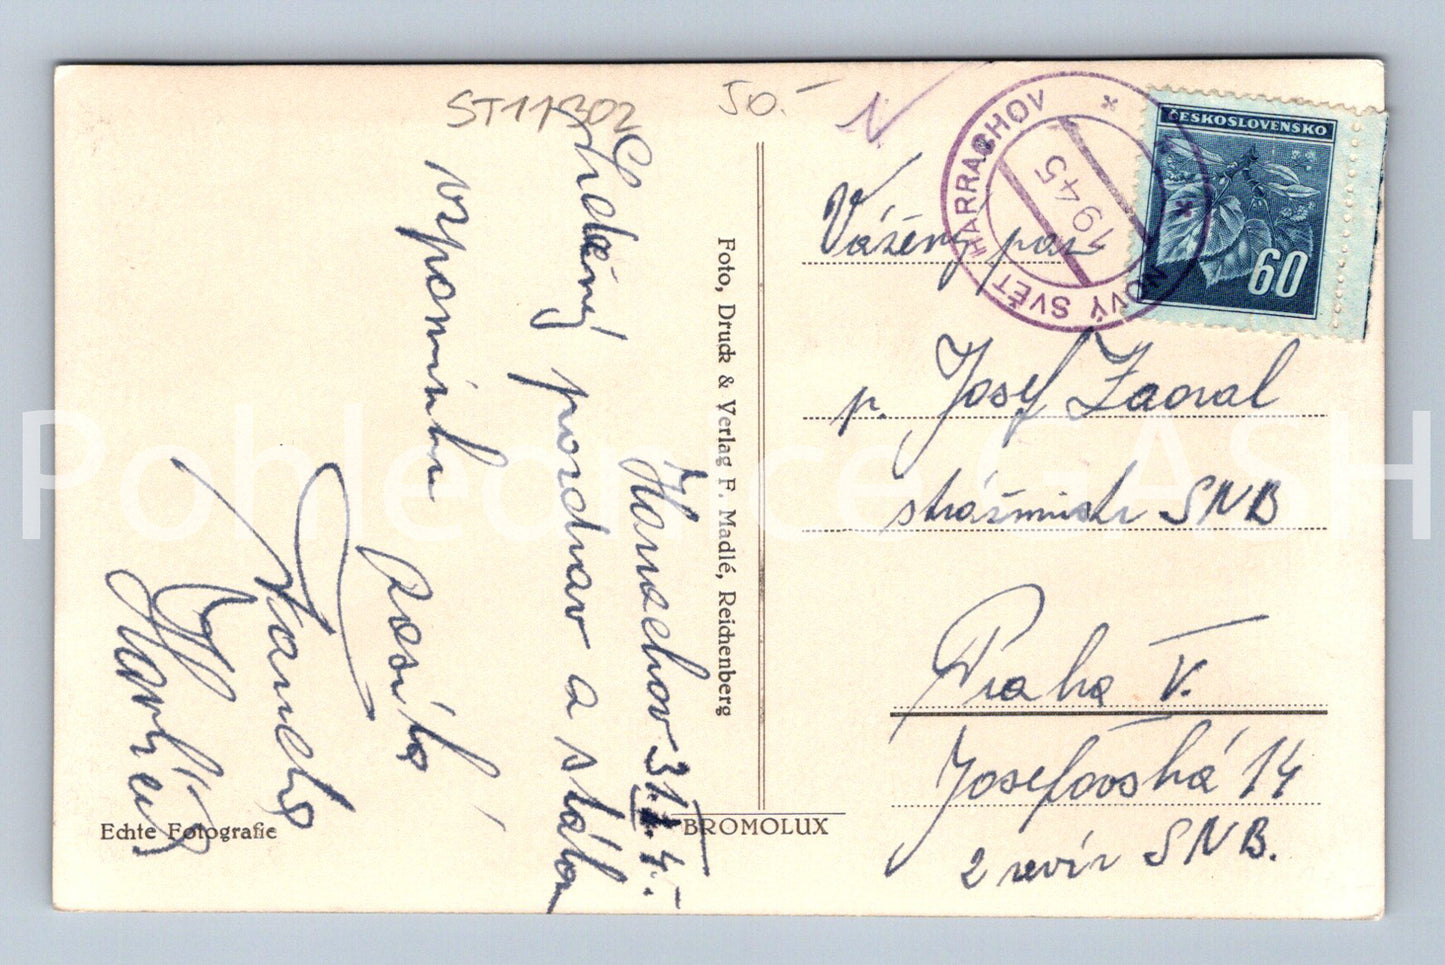 ST11302
50.-
Harrachov 31.
Srdečný pozdrav a stálou
vzpomínku
posílá
Echte Fotografie
Foto, Druck & Verlag F. Madlé, Reichenberg
BROMOLUX
HARRACHOV
NOVÝ SVĚT
1945
ČESKOSLOVENSKO
60
Vážený pan
p. Josef Zaoral
strážmistr SNB
Praha V.
Josefovská 14
2 revír SNB.
Pohlednice GASH